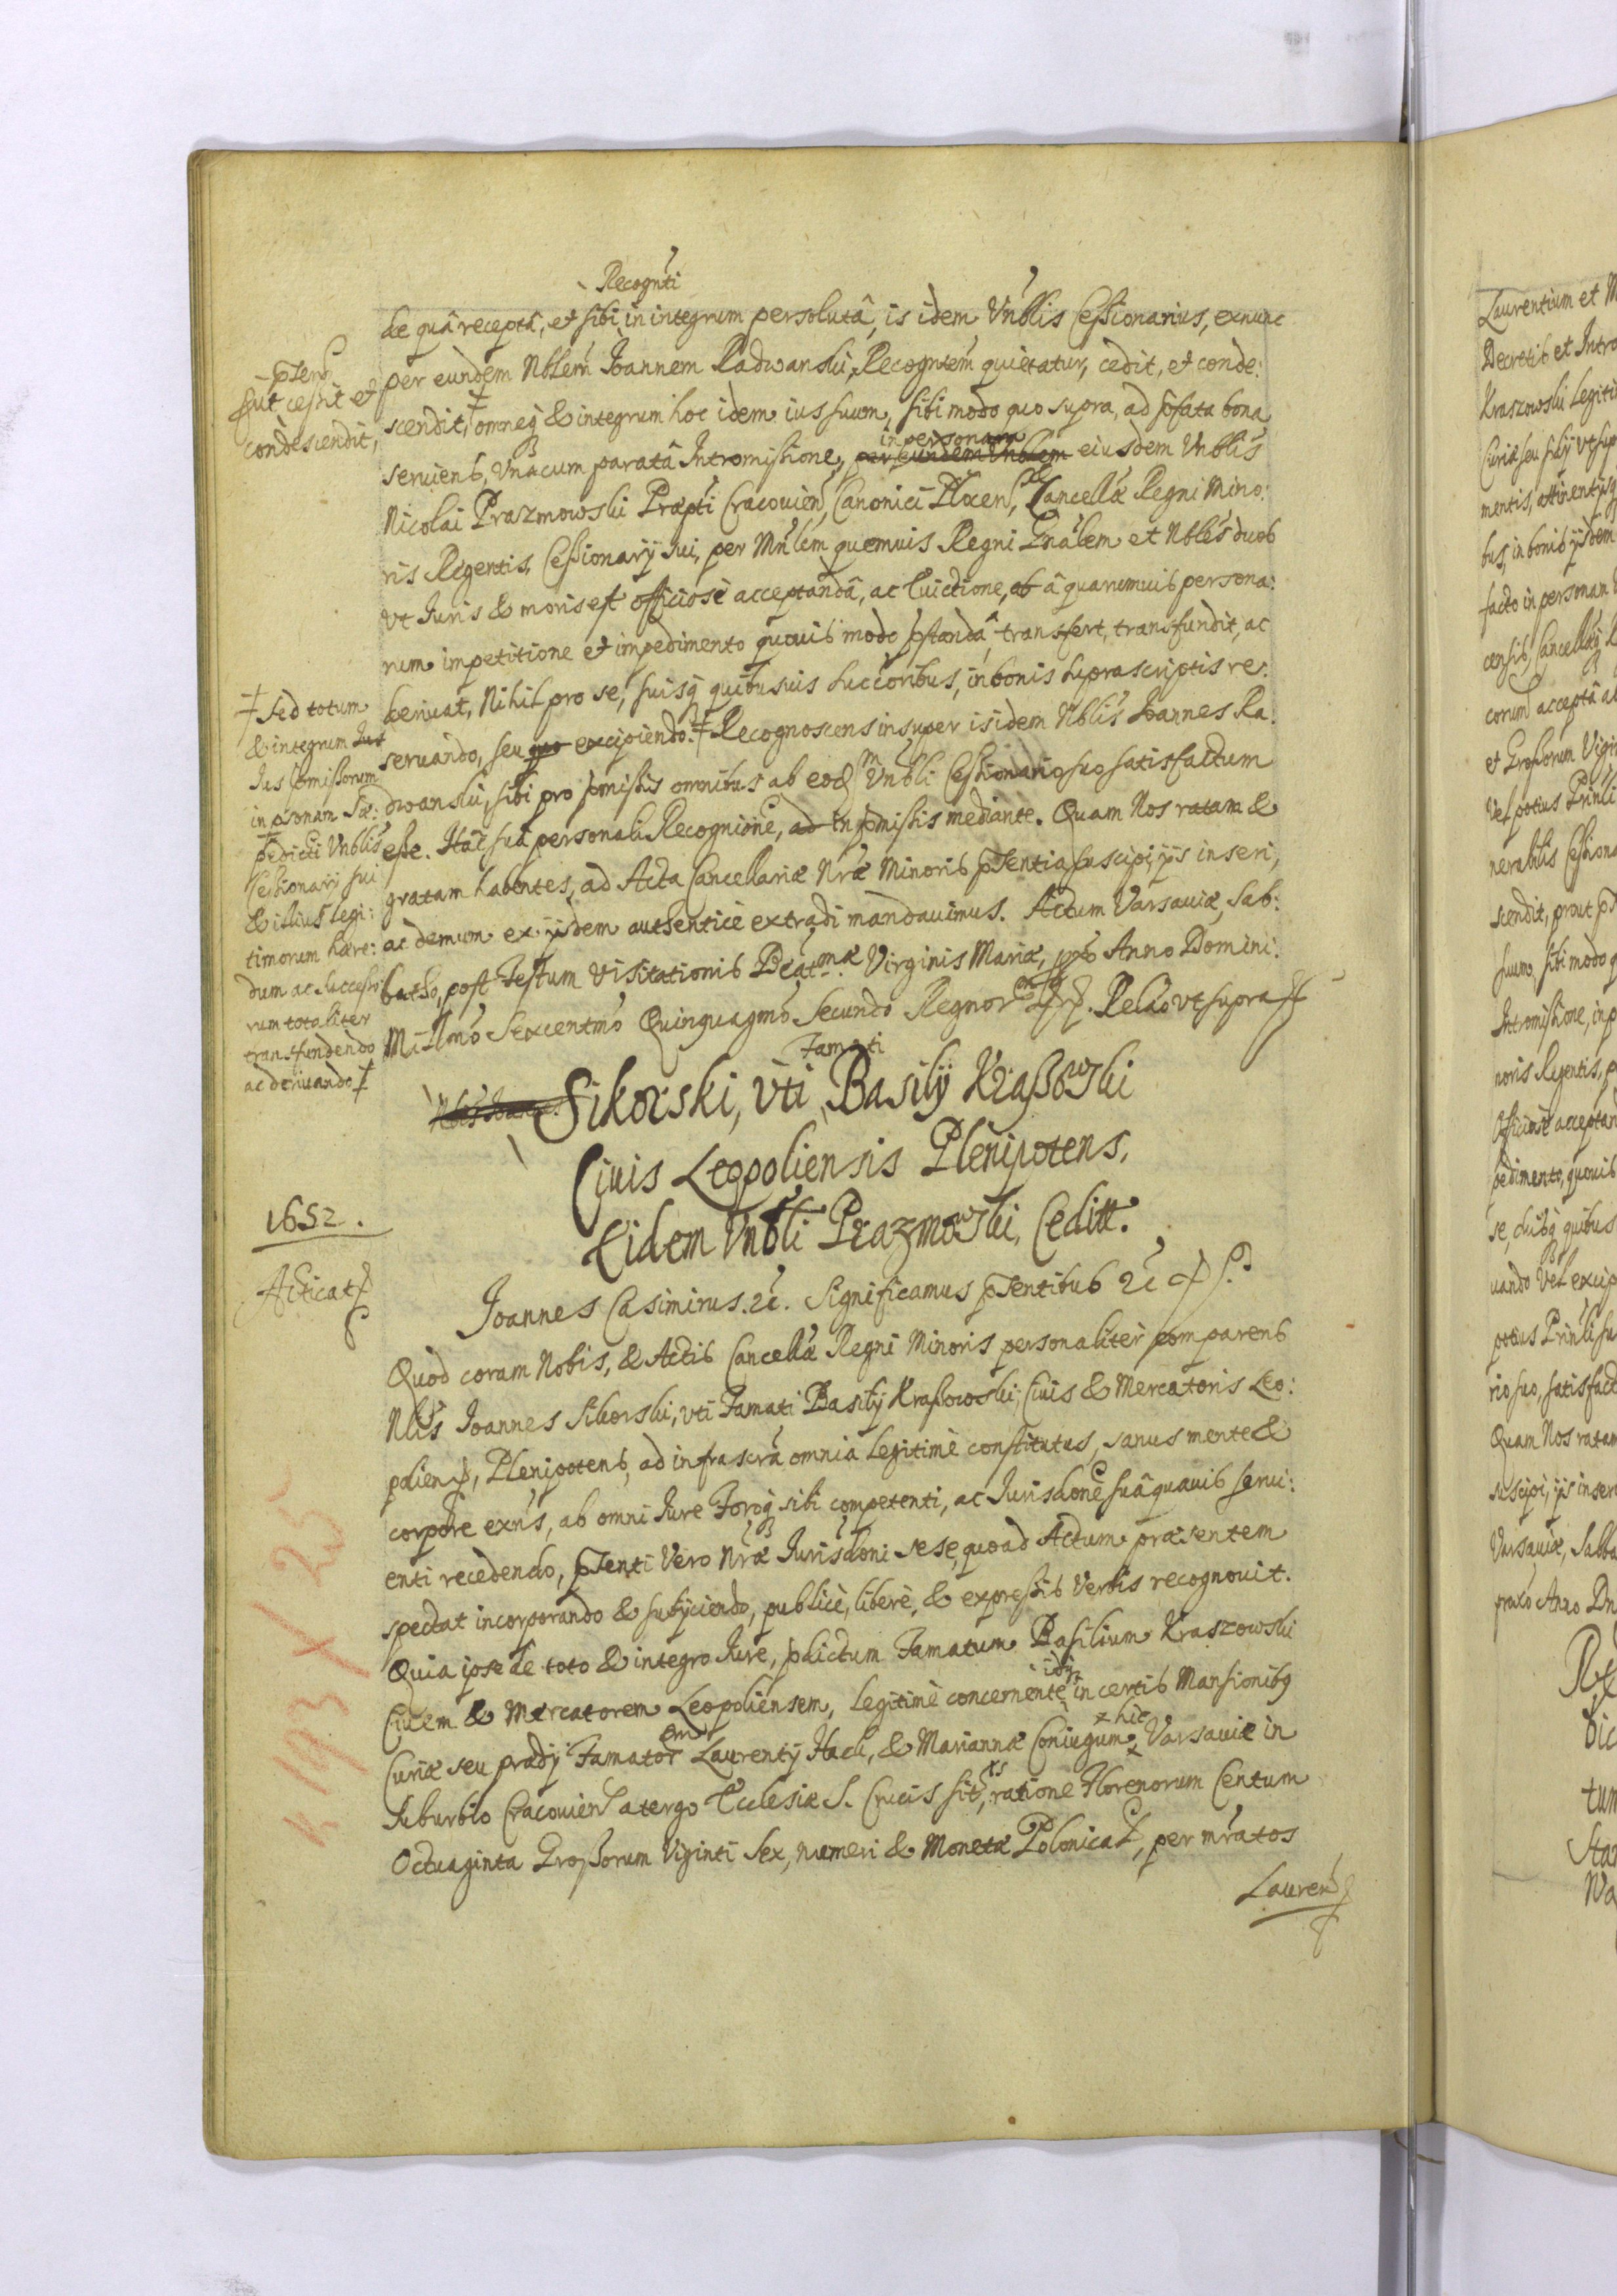 Recognti
de quâ receptâ, et sibi in integrum persolutâ, is idem Vnblis Cessionarius, exnunc
per eundem Nblem Joannem Radwanski, Recogntem quietatur, cedit, et conde:
scendit, ‡ omneq & integrum hoc idem ius suum, sibi modo quo supra, ad pfata bona
seruiens, Vnacum paratâ Intromissione, per eundem Vnblem in personam eiusdem Vnblis
Nicolai Prazmowski Præpti Cracouien, Canonici Plocen, Cancellæ Regni Mino:
ris Regentis, Cessionarij sui, per Mnlem quemuis Regni Gnalem et Nbles duos
vt Juris & moris est officiose acceptandâ, ac Euictione, ab â quarumuis persona:
rum impetitione et impedimento quouis modo pstandâ transfert, transfundit, ac
deriuat, Nihil pro se, suisq quibusuis succoribus, in bonis suprascriptis re:
seruando, seu quo excipiendo. ‡ Recognoscens insuper is idem Nblis Joannes Ra:
dwanski, sibi pro pmissis omnibus ab eod Vnbli Cessionario suo satisfactum
esse. Hac suâ personali Recognione, ad in pmissis mediante. Quam Nos ratam &
gratam habentes, ad Acta Cancellariæ Nræ Minoris pSentia suscipi, ijs inseri,
ac demum ex ijsdem authentice extradi mandauimus. Actum Varsauiæ, Sab:
batho, post Festum Visitationis Beatmæ Virginis Mariæ, Anno Domini
Millmo Sexcentmo Quinquagmo Secundo Regnor Relao vt supra
pSens
put cessit et
condescendit,
‡ Sed totum
& integrum Jus
Jus pmissorum
in psonam Sæ:
pedicti Vnblis
Cessionarij sui
& illius legi:
timorum hære:
dum ac successo
rum totaliter
transfundendo
ac deriuando ‡
Famati
Nblis Joannes Sikorski, vti Basilij Kraßowski
Ciuis Leopoliensis Plenipotens,
Eidem Vnbli Prazmowski, Cedit.
1652.
Acticat
Joannes Casimirus. 2c. Significamus pSentibus 2c
Quod coram Nobis, & Actis Cancellæ Regni Minoris personaliter comparens
Nlis Joannes Sikorski, vti Famati Basilij Kraßowski, Ciuis & Mercatoris Leo:
polien, Plenipotens, ad infrascra omnia legitime constitutus, sanus mente &
corpore exns, ab omni Jure Foroq sibi competenti, ac Jurisdone suâ quauis serui:
enti recedendo, pSenti Vero Nræ Jurisdoni sese, quoad Actum præsentem
spectat incorporando & subijciendo, publice, libere, & expressis Verbis recognouit.
Quia ipse de toto & integro Jure, pdictum Famatum Basilium Kraszowski
Ciuem & Mercatorem Leopoliensem, legitime concernente in certis Mansionibq
Curiæ seu prædij Famator Laurentij Hacki, & Mariannæ Coniugum, hic Varsauiæ in
Suburbio Cracouien a tergo Ecclesiæ S. Crucis sit, ratione Florenorum Centum
Octuaginta Grossorum Viginti Sex, numeri & Monetæ Polonical, per mratos
Lauren
K 193 / 25
Laurentium et M
Decretis et Intro
Kraszowski Legiti
Curiæ seu
mentis, attinentijsq
bus, in bonis ijsdem
facto in personam
censis, Cancellæq
corum acceptâ
et Grossorum Vigin
Vel potius Prinli
nerabilis Cessiona
scendit, prout
suum, sibi modo q
Intromissione, in p
noris Regentis, p
Officiose acceptan
pedimento, quouis
se, suisq quibus
uando Vel excip
potius Prinli su
rio suo, satisfact
Quam Nos ratam
suscipi, ijs inseri
Varsauiæ, Sabba
Anno Dn